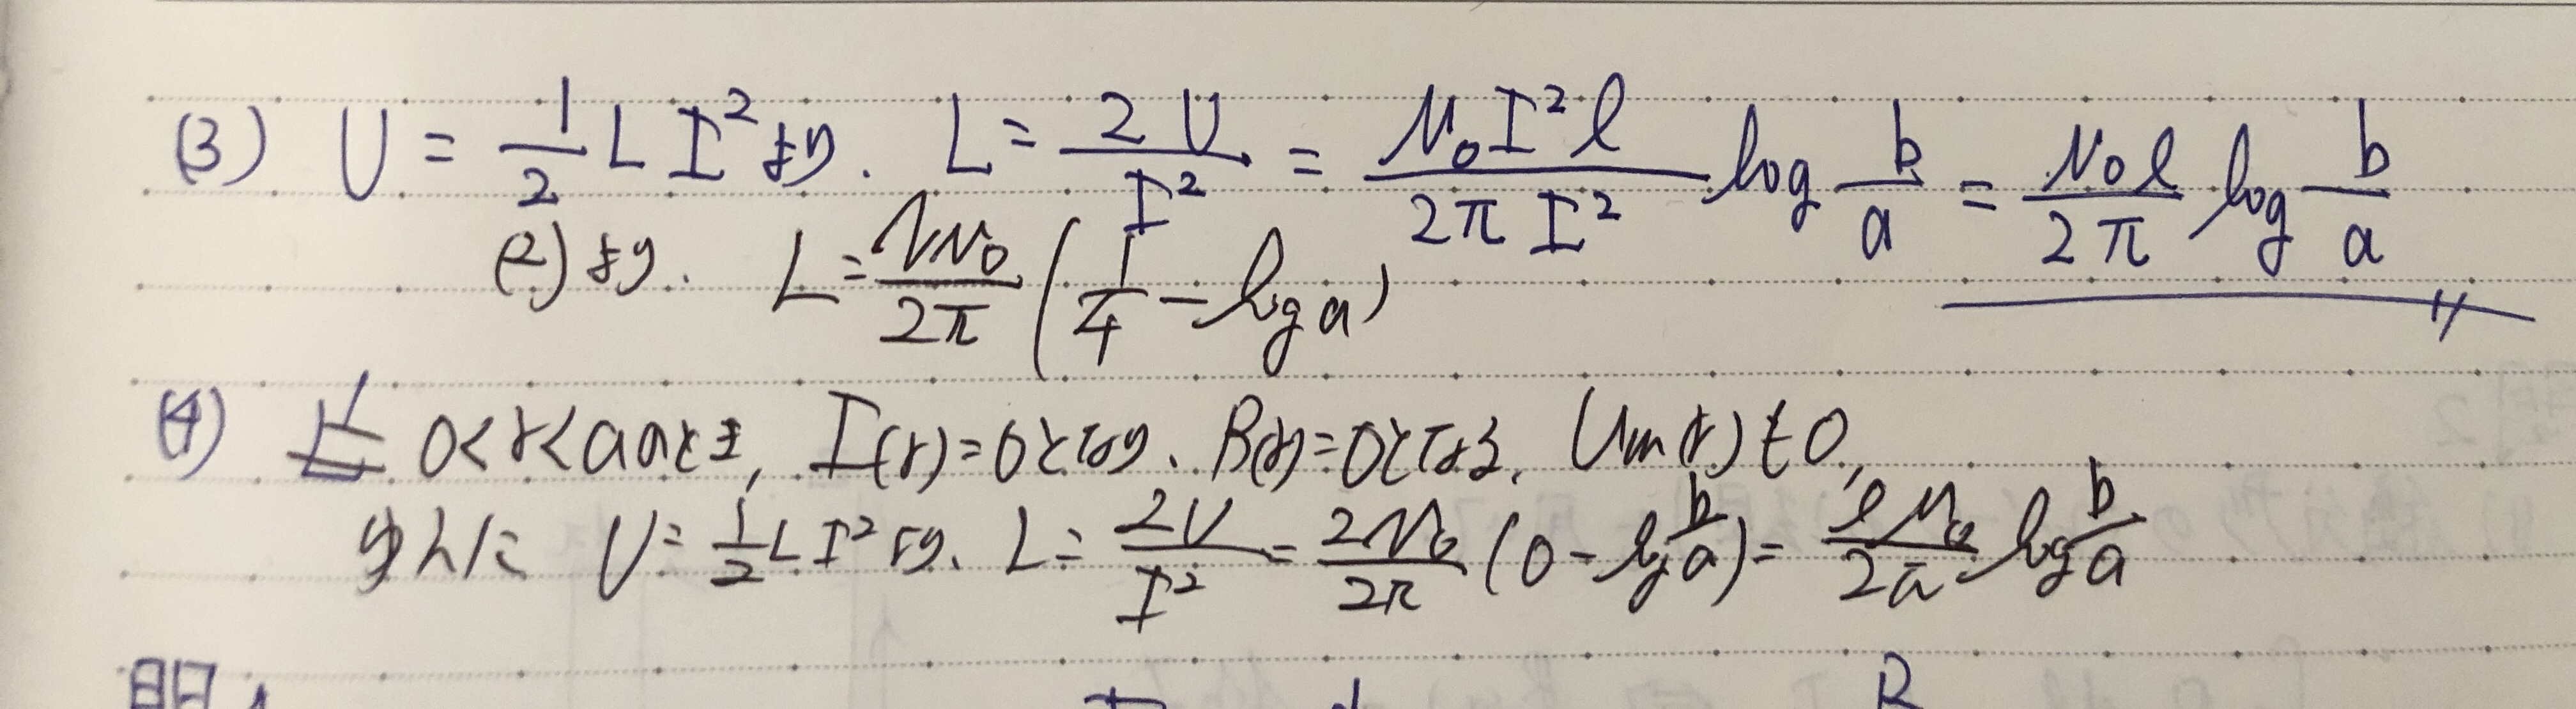 (3) U = 1/2 L I² より. L = 2U/I² = μ₀I²l/2πI² log b/a = μ₀l/2π log b/a
(2)より. L = μ₀/2π (1/4 - log a)
(4) 0<r<aのとき, I(r)=0となり、B(r)=0となる. Um(r)も0,
ゆえに U = 1/2 L I² より. L = 2U/I² = 2μ₀/2π (0 - log b/a) = lμ₀/2π log b/a